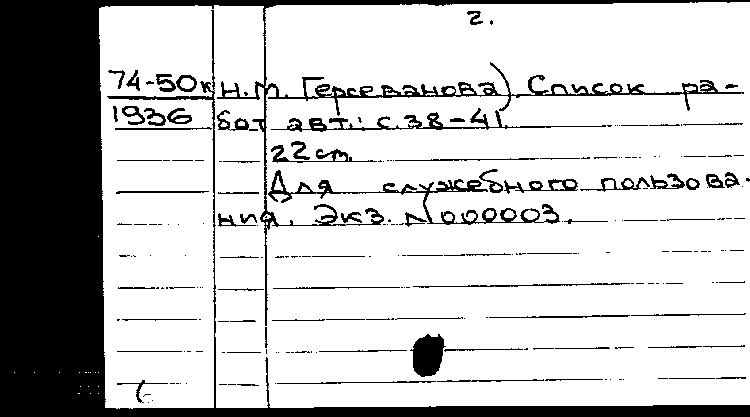 2.
74-50к Н.М. Герсеванова). Список ра-
1936 бот авт.: с.38-41.
22 см.
Для служебного пользова-
ния. Экз. №000003.